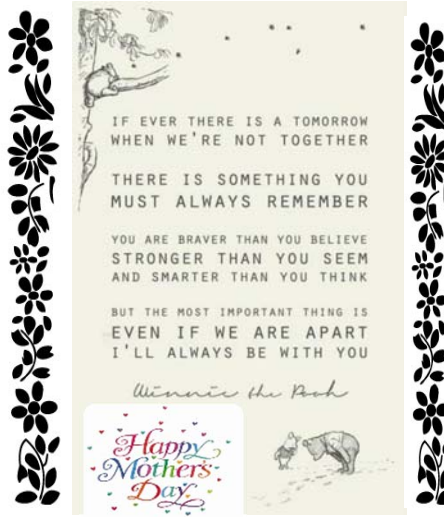 IF EVER THERE IS A TOMORROW
WHEN WE'RE NOT TOGETHER
THERE IS SOMETHING YOU
MUST ALWAYS REMEMBER
YOU ARE BRAVER THAN YOU BELIEVE
STRONGER THAN YOU SEEM
AND SMARTER THAN YOU THINK
BUT THE MOST IMPORTANT THING IS
EVEN IF WE ARE APART
I'LL ALWAYS BE WITH YOU
Winnie the Pooh
Happy
Mother's
Day